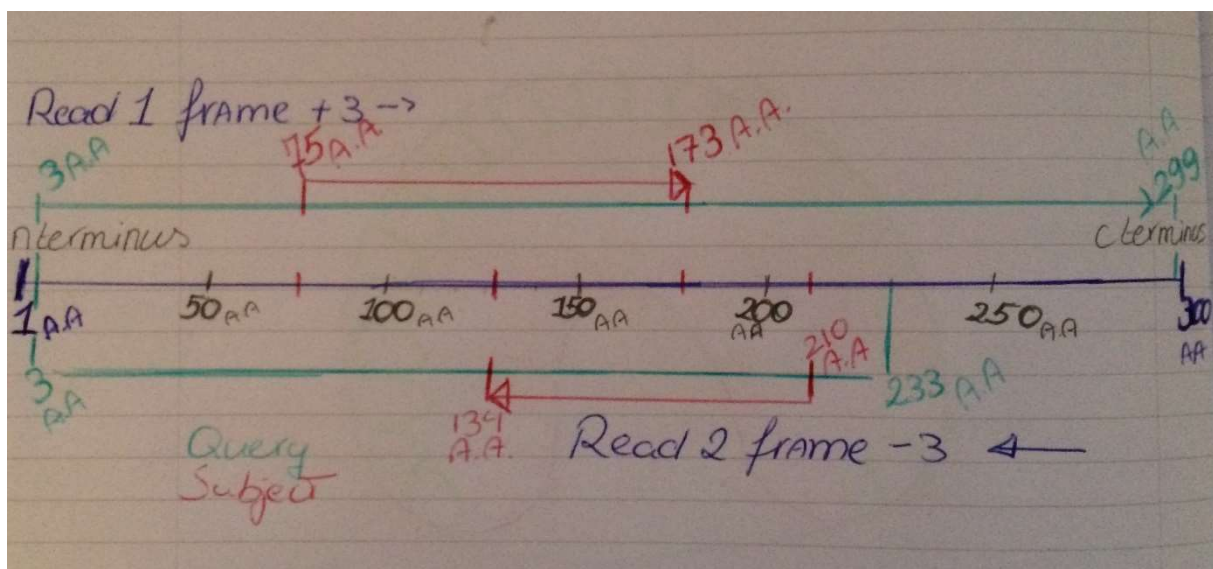 Read 1 frAme + 3 ->
3 A.A
75 A.A
173 A.A.
299 A.A
n terminus
C terminus
1 A.A
50 AA
100 AA
150 AA
200 AA
250 AA
300 AA
3 AA
134 A.A.
210 A.A
233 A.A
Query
Subject
Read 2 frAme - 3